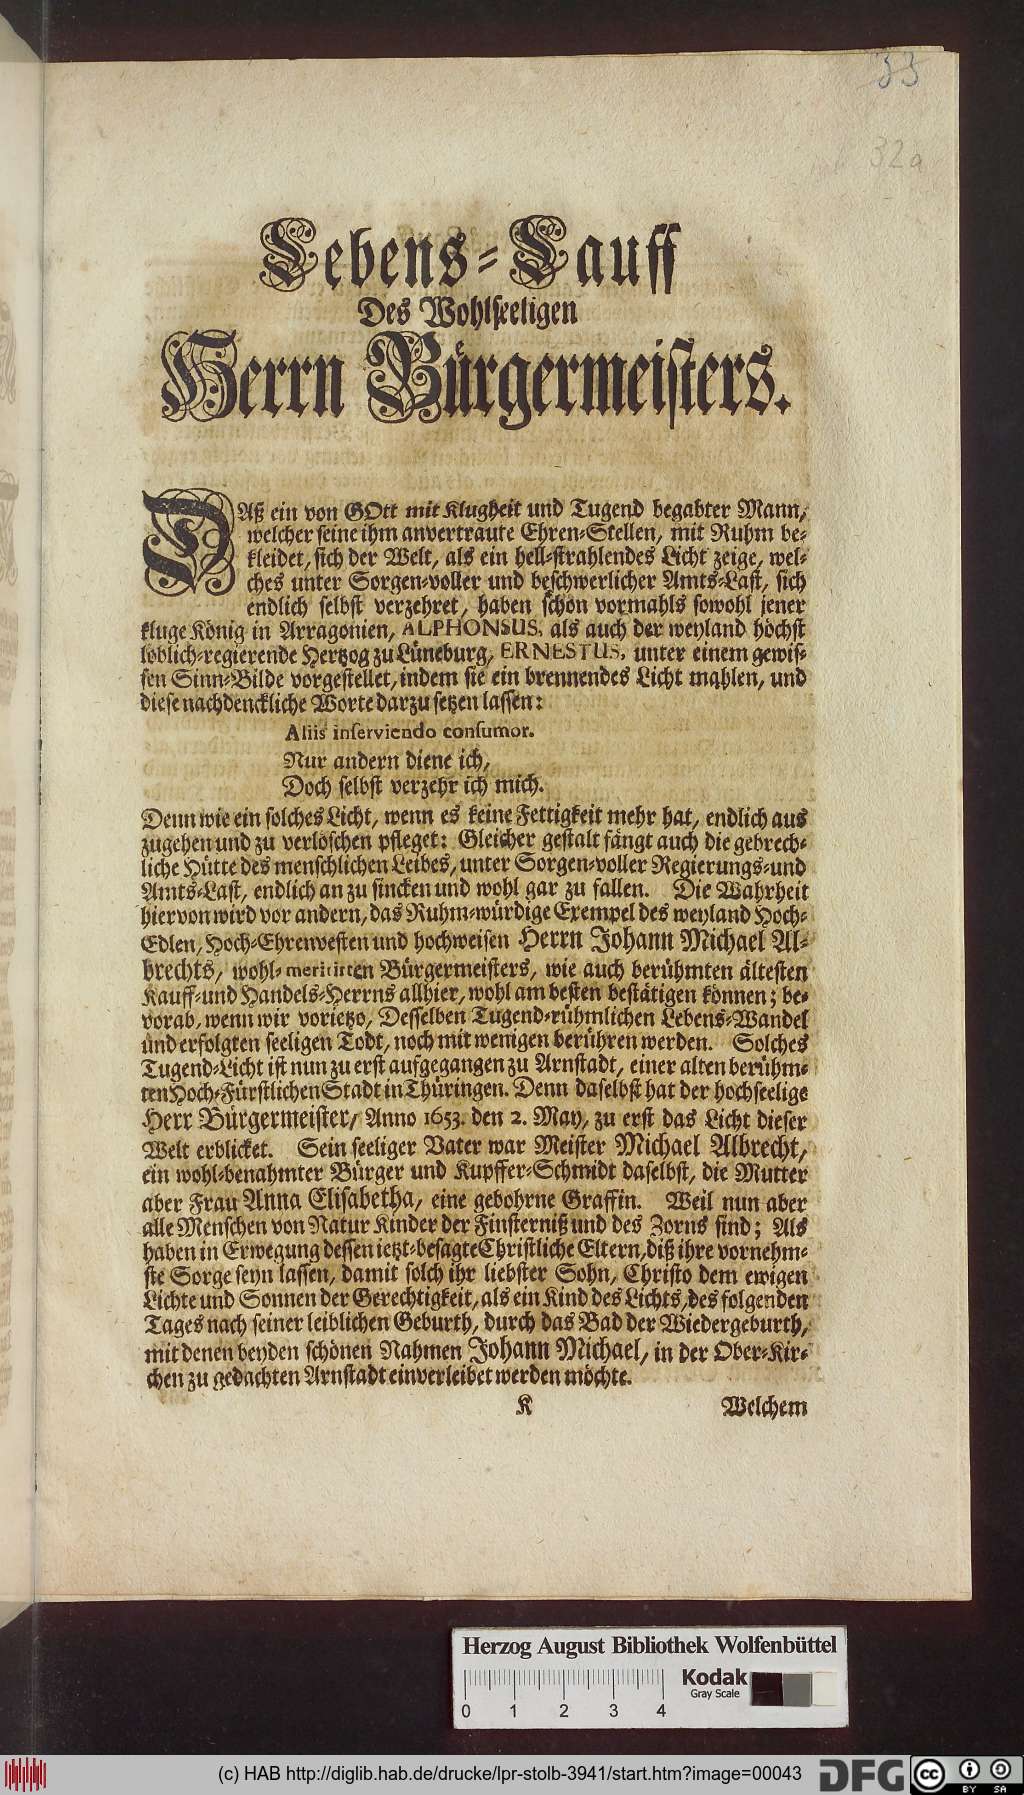 33
32a
Lebens-Lauff
Des Wohlseeligen
Herrn Bürgermeisters.
DAß ein von GOtt mit Klugheit und Tugend begabter Mann,
welcher seine ihm anvertraute Ehren-Stellen, mit Ruhm be-
kleidet, sich der Welt, als ein hell-strahlendes Licht zeige, wel-
ches unter Sorgen-voller und beschwerlicher Amts-Last, sich
endlich selbst verzehret, haben schon vormahls sowohl jener
kluge König in Arragonien, ALPHONSUS, als auch der weyland höchst
löblich-regierende Hertzog zu Lüneburg, ERNESTUS, unter einem gewis-
sen Sinn-Bilde vorgestellet, indem sie ein brennendes Licht mahlen, und
diese nachdenckliche Worte darzu setzen lassen:
Aliis inserviendo consumor.
Nur andern diene ich,
Doch selbst verzehr ich mich.
Denn wie ein solches Licht, wenn es keine Fettigkeit mehr hat, endlich aus
zugehen und zu verlöschen pfleget: Gleicher gestalt fängt auch die gebrech-
liche Hütte des menschlichen Leibes, unter Sorgen-voller Regierungs-und
Amts-Last, endlich an zu sincken und wohl gar zu fallen. Die Wahrheit
hiervon wird vor andern, das Ruhm-würdige Exempel des weyland Hoch-
Edlen, Hoch-Ehrenvesten und hochweisen Herrn Johann Michael Al-
brechts, wohl-meritirten Bürgermeisters, wie auch berühmten ältesten
Kauff-und Handels-Herrns allhier, wohl am besten bestätigen können; be-
vorab, wenn wir vorietzo, Desselben Tugend-rühmlichen Lebens-Wandel
und erfolgten seeligen Todt, noch mit wenigen berühren werden. Solches
Tugend-Licht ist nun zu erst aufgegangen zu Arnstadt, einer alten berühm-
ten Hoch-Fürstlichen Stadt in Thüringen. Denn daselbst hat der hochseelige
Herr Bürgermeister, Anno 1653. den 2. May, zu erst das Licht dieser
Welt erblicket. Sein seeliger Vater war Meister Michael Albrecht,
ein wohl-benahmter Bürger und Kupffer-Schmidt daselbst, die Mutter
aber Frau Anna Elisabetha, eine gebohrne Graffin. Weil nun aber
alle Menschen von Natur Kinder der Finsterniß und des Zorns sind; Als
haben in Erwegung dessen ietzt-besagte Christliche Eltern, diß ihre vornehm-
ste Sorge seyn lassen, damit solch ihr liebster Sohn, Christo dem ewigen
Lichte und Sonnen der Gerechtigkeit, als ein Kind des Lichts, des folgenden
Tages nach seiner leiblichen Geburth, durch das Bad der Wiedergeburth,
mit denen beyden schönen Nahmen Johann Michael, in der Ober-Kir-
chen zu gedachten Arnstadt einverleibet werden möchte.
K Welchem
Herzog August Bibliothek Wolfenbüttel
Kodak
Gray Scale
0 1 2 3 4
(c) HAB http://diglib.hab.de/drucke/lpr-stolb-3941/start.htm?image=00043
DFG
cc BY SA